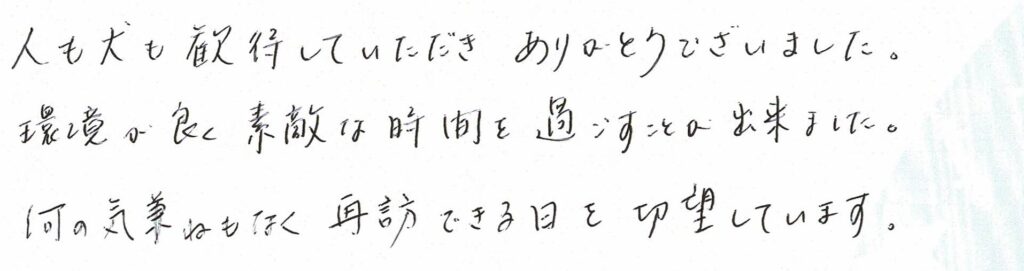 人も犬も歓待していただき ありがとうございました。
環境が良く素敵な時間を過ごすことが出来ました。
何の気兼ねもなく再訪できる日を切望しています。